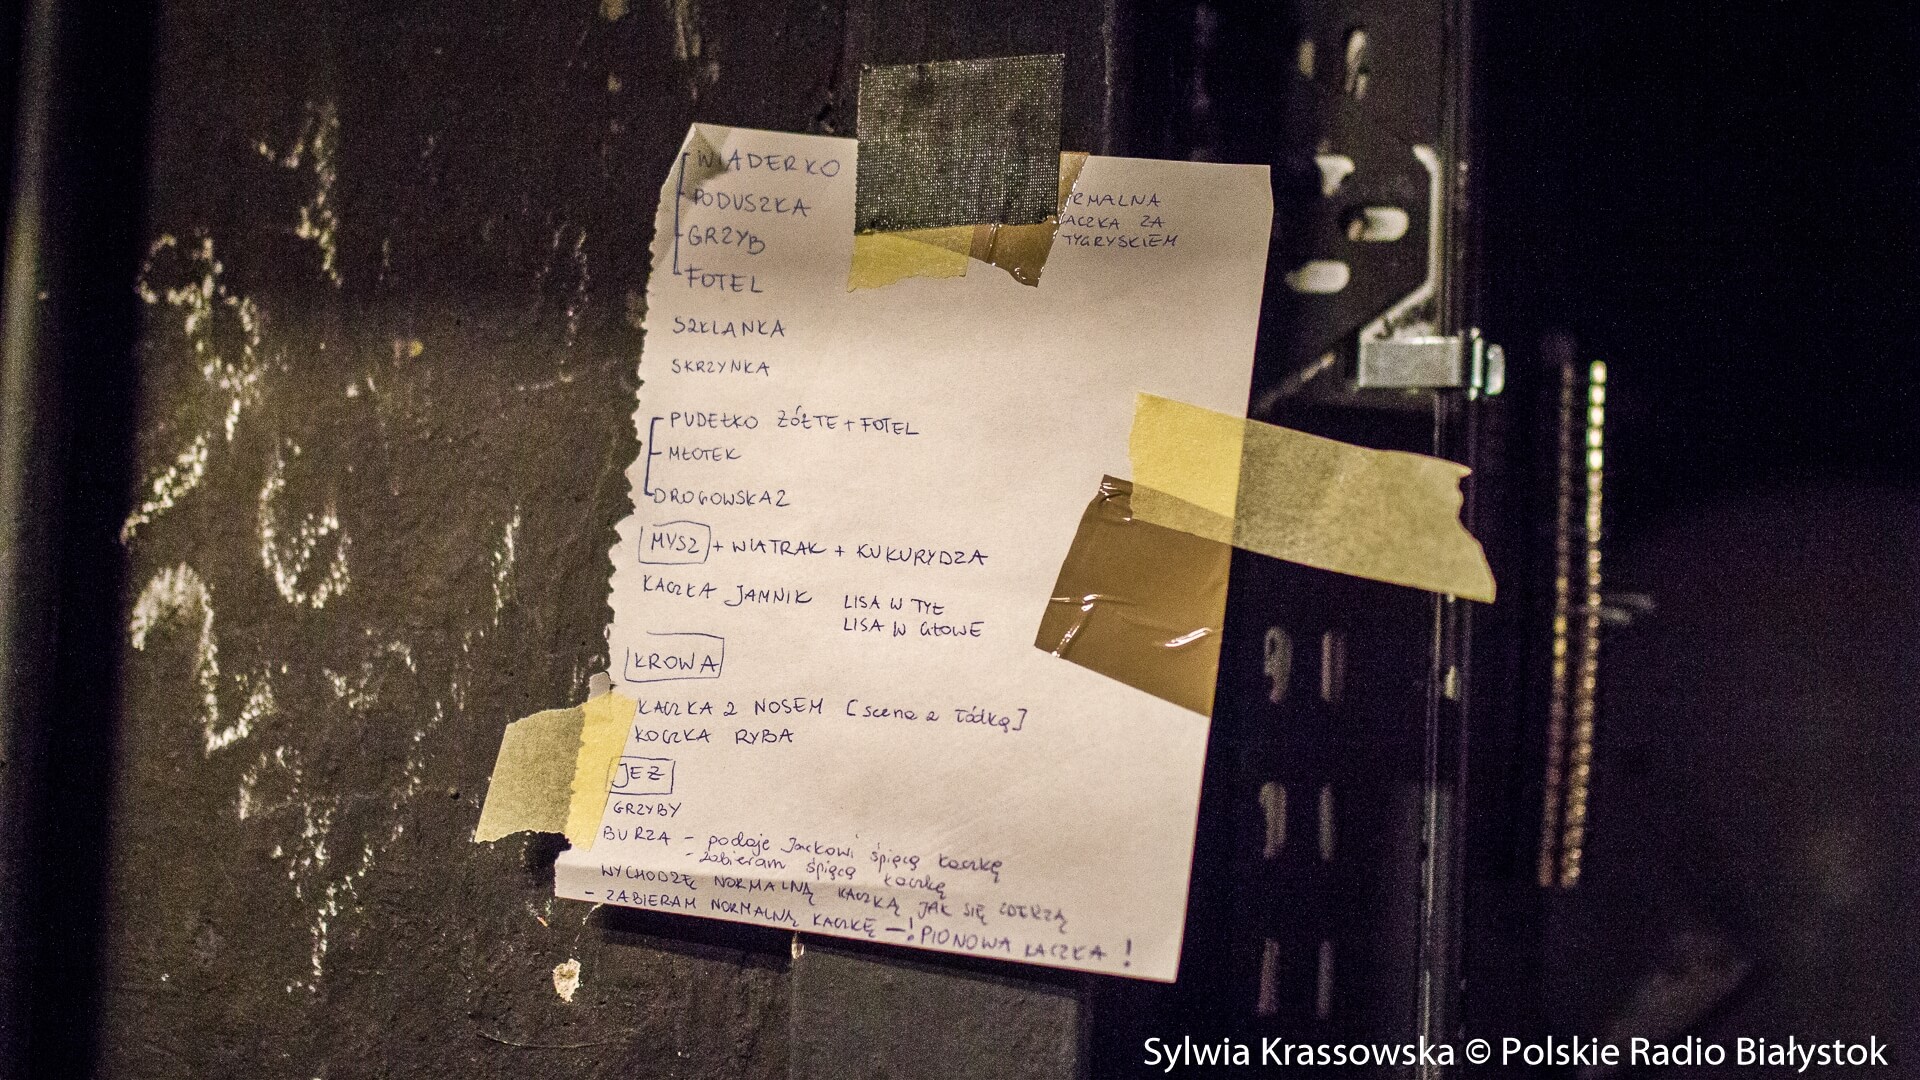 WIADERKO
PODUSZKA
GRZYB
FOTEL
RMALNA
ACZKA ZA
TYGRYSKIEM
SZKLANKA
SKRZYNKA
PUDEŁKO ŻÓŁTE + FOTEL
MŁOTEK
DROGOWSKAZ
MYSZ + WIATRAK + KUKURYDZA
KACZKA JAMNIK
LISA W TYŁ
LISA W GŁOWE
KROWA
KACZKA Z NOSEM [scena z łódką]
KACZKA RYBA
JEŻ
GRZYBY
BURZA - podaje Jackowi śpiącą kaczkę
- zabieram śpiącą kaczkę
WYCHODZĘ NORMALNĄ KACZKĄ JAK SIĘ
- ZABIERAM NORMALNĄ KACZKĘ —! PIONOWA KACZKA !
Sylwia Krassowska © Polskie Radio Białystok